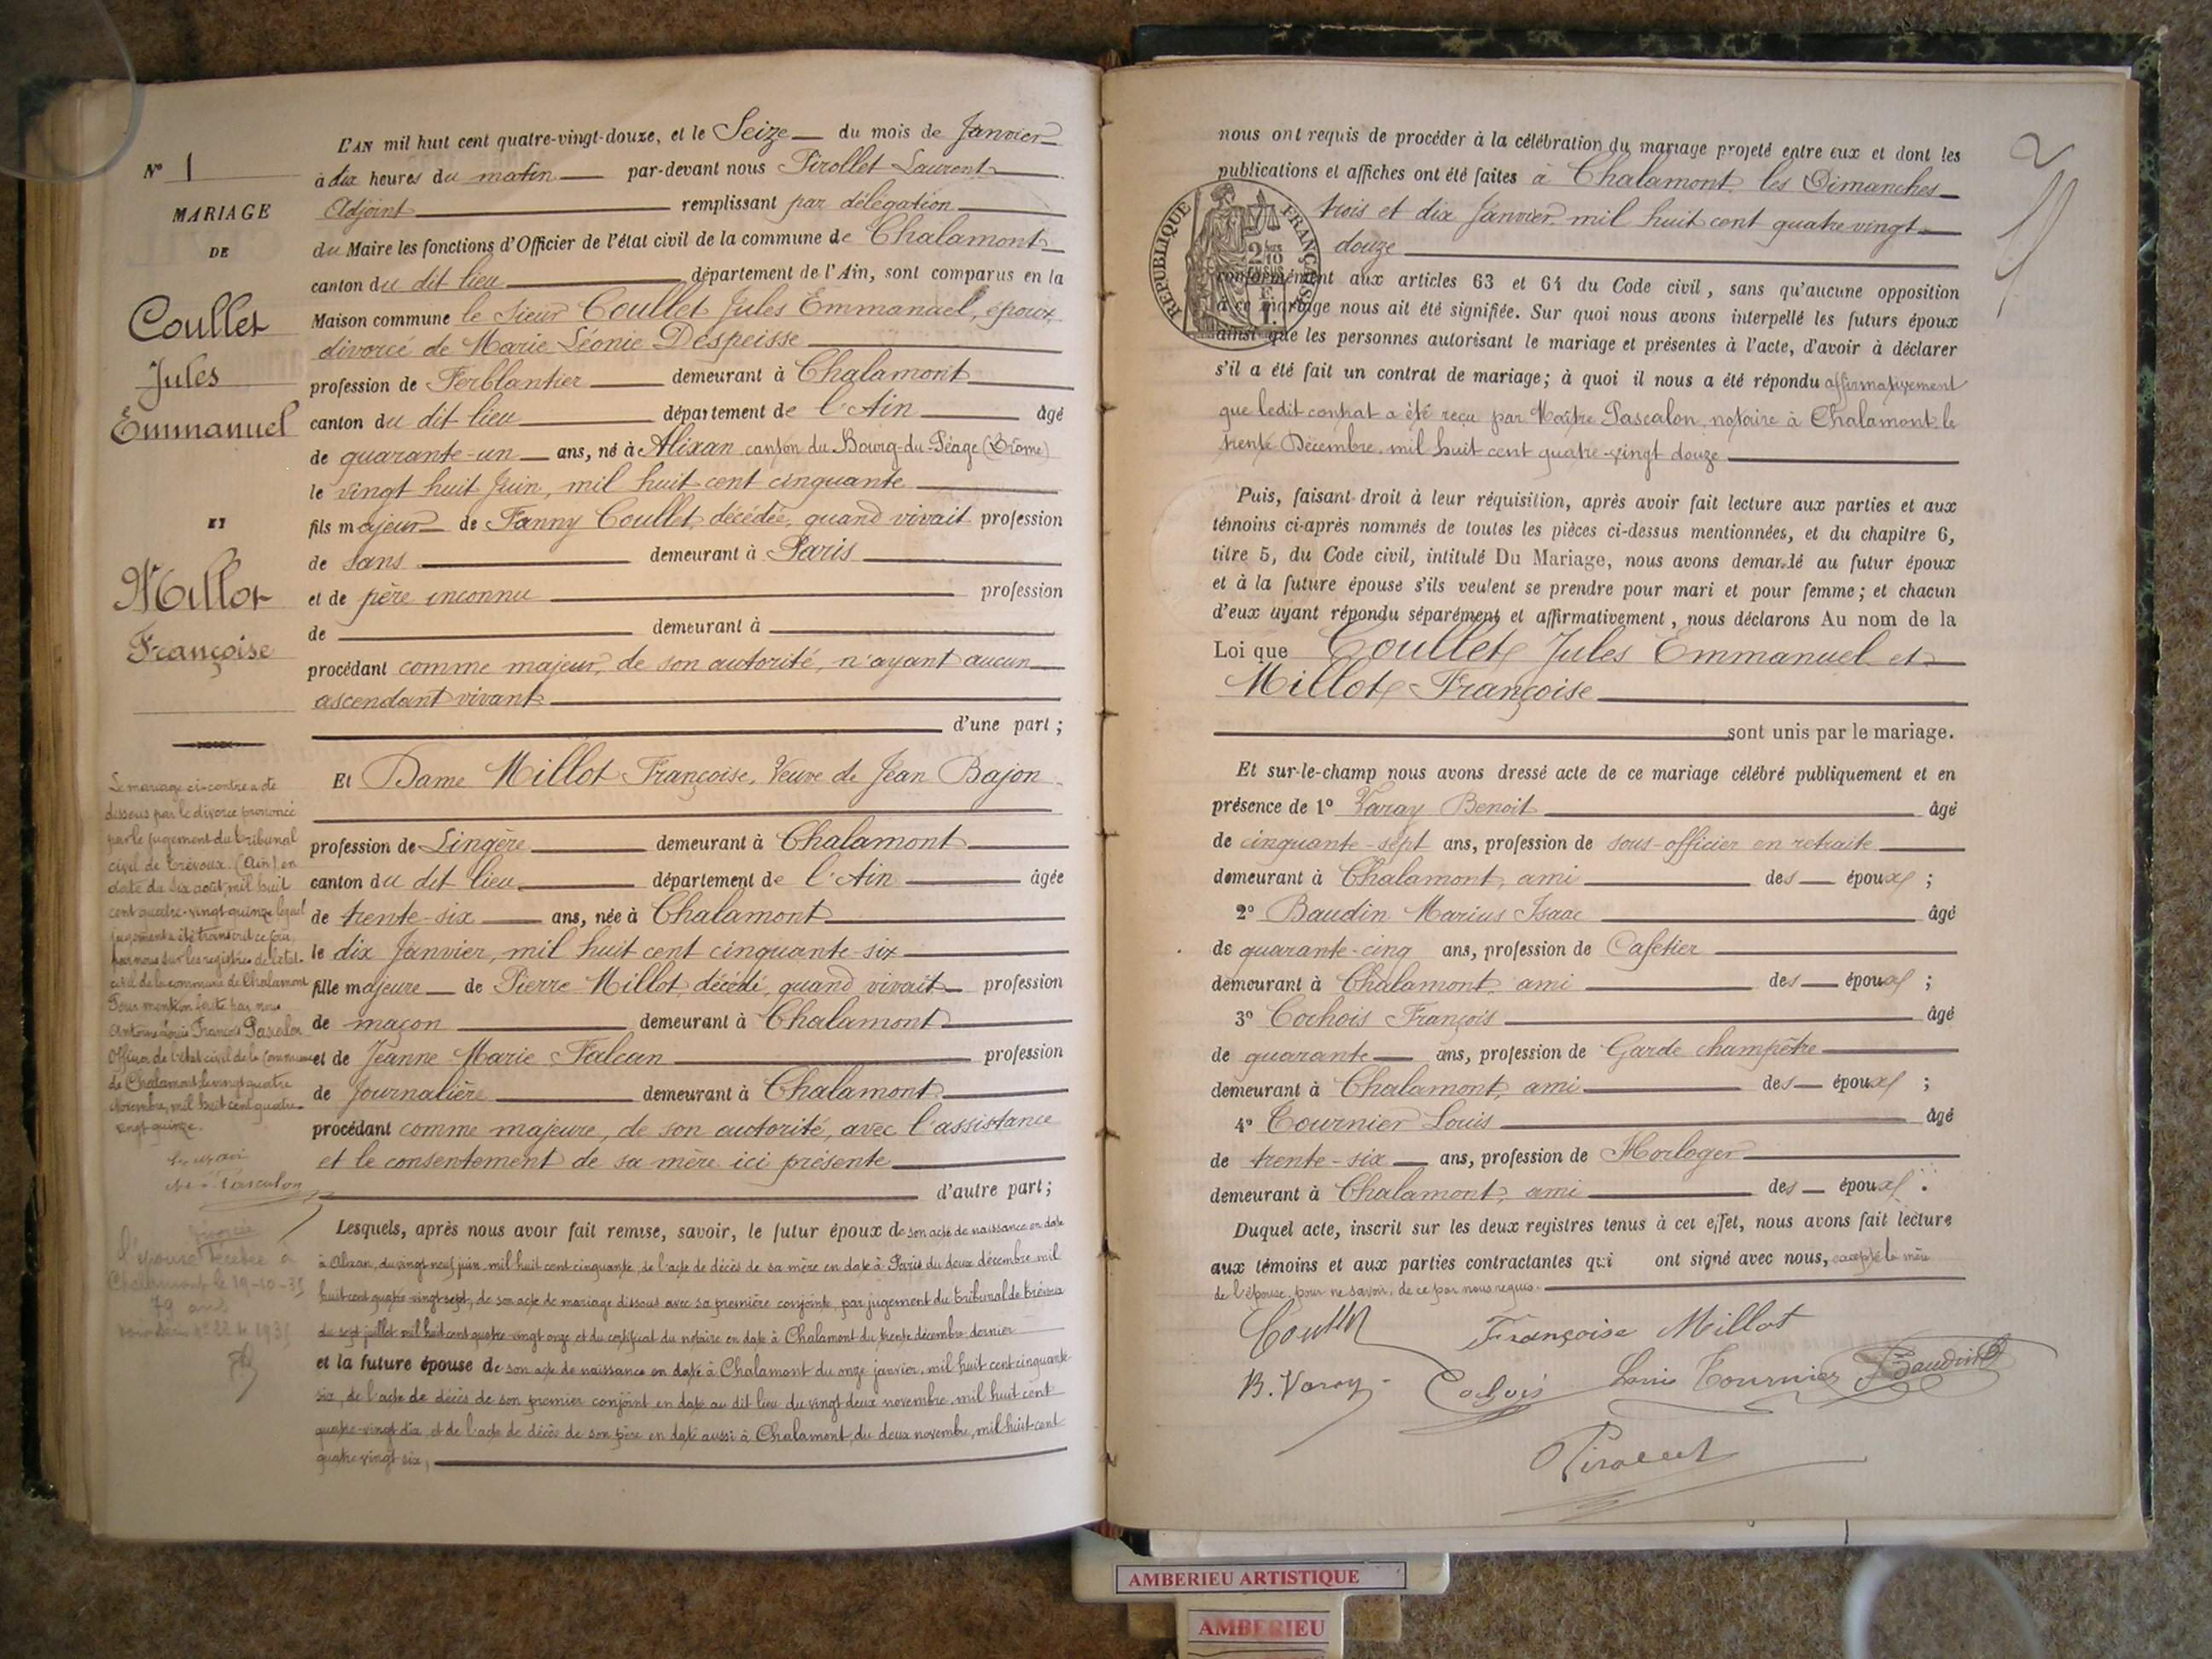 N° 1
MARIAGE
DE
Coullet
Jules
Emmanuel
ET
Millot
Françoise
Le mariage ci-contre a été
dissous par le divorce prononcé
par le jugement du tribunal
civil de Trévoux (Ain) en
date du six août mil huit
cent quatre-vingt-quinze lequel
jugement a été transcrit ce jour
par nous sur les registres de l'état-
civil de la commune de Chalamont
Pour mention faite par nous
Antoine Louis François Pascalon
Officier de l'état civil de la Commune
de Chalamont le vingt quatre
Novembre, mil huit cent quatre-
vingt quinze.
Pascalon
divorcée
l'épouse décédée à
Chalamont le 19-10-35
79 ans
L'AN mil huit cent quatre-vingt-douze, et le Seize du mois de Janvier
à dix heures du matin par-devant nous Pirollet Laurent
Adjoint remplissant par délégation
du Maire les fonctions d'Officier de l'état civil de la commune de Chalamont
canton du dit lieu département de l'Ain, sont comparus en la
Maison commune le sieur Coullet Jules Emmanuel, époux
divorcé de Marie Léonie Despeisse
profession de Ferblantier demeurant à Chalamont
canton du dit lieu département de l'Ain âgé
de quarante-un ans, né à Alixan canton du Bourg-du-Péage (Drôme)
le vingt huit Juin, mil huit cent cinquante
fils majeur de Fanny Coullet, décédée, quand vivait profession
de sans demeurant à Paris
et de père inconnu profession
de demeurant à
procédant comme majeur, de son autorité, n'ayant aucun
ascendant vivant
d'une part ;
Et Dame Millot Françoise, Veuve de Jean Bajon
profession de Lingère demeurant à Chalamont
canton du dit lieu département de l'Ain âgée
de trente-six ans, née à Chalamont
le dix Janvier, mil huit cent cinquante-six
fille majeure de Pierre Millot, décédé, quand vivait profession
de maçon demeurant à Chalamont
et de Jeanne Marie Falcan profession
de Journalière demeurant à Chalamont
procédant comme majeure, de son autorité, avec l'assistance
et le consentement de sa mère ici présente
d'autre part ;
Lesquels, après nous avoir fait remise, savoir, le futur époux de son acte de naissance en date
à Alixan, du vingt neuf juin mil huit cent cinquante, de l'acte de décès de sa mère en date à Paris du deux décembre mil
huit cent quatre vingt sept, de son acte de mariage dissous avec sa première conjointe, par jugement du tribunal de Trévoux
du sept juillet mil huit cent quatre-vingt onze et du certificat du notaire en date à Chalamont du trente décembre dernier
et la future épouse de son acte de naissance en date à Chalamont du onze janvier, mil huit cent cinquante
six, de l'acte de décès de son premier conjoint en date au dit lieu du vingt deux novembre, mil huit cent
quatre-vingt dix, et de l'acte de décès de son père en date aussi à Chalamont, du deux novembre, mil huit cent
quatre vingt six,
2
nous ont requis de procéder à la célébration du mariage projeté entre eux et dont les
publications et affiches ont été faites à Chalamont les Dimanches
trois et dix Janvier mil huit cent quatre vingt
douze
REPUBLIQUE FRANÇAISE
conformément aux articles 63 et 64 du Code civil, sans qu'aucune opposition
à ce mariage nous ait été signifiée. Sur quoi nous avons interpellé les futurs époux
ainsi que les personnes autorisant le mariage et présentes à l'acte, d'avoir à déclarer
s'il a été fait un contrat de mariage ; à quoi il nous a été répondu affirmativement
que ledit contrat a été reçu par Maître Pascalon, notaire à Chalamont, le
trente Décembre mil huit cent quatre-vingt douze
Puis, faisant droit à leur réquisition, après avoir fait lecture aux parties et aux
témoins ci-après nommés de toutes les pièces ci-dessus mentionnées, et du chapitre 6,
titre 5, du Code civil, intitulé Du Mariage, nous avons demandé au futur époux
et à la future épouse s'ils veulent se prendre pour mari et pour femme ; et chacun
d'eux ayant répondu séparément et affirmativement, nous déclarons Au nom de la
Loi que Coullet Jules Emmanuel et
Millot Françoise
sont unis par le mariage.
Et sur-le-champ nous avons dressé acte de ce mariage célébré publiquement et en
présence de 1° Varay Benoit âgé
de cinquante-sept ans, profession de sous-officier en retraite
demeurant à Chalamont, ami des époux ;
2° Baudin Marius Isaac âgé
de quarante-cinq ans, profession de Cafetier
demeurant à Chalamont, ami des époux ;
3° Cochois François âgé
de quarante ans, profession de Garde champêtre
demeurant à Chalamont, ami des époux ;
4° Tournier Louis âgé
de trente-six ans, profession de Horloger
demeurant à Chalamont, ami des époux.
Duquel acte, inscrit sur les deux registres tenus à cet effet, nous avons fait lecture
aux témoins et aux parties contractantes qui ont signé avec nous, excepté la mère
de l'épouse, pour ne savoir, de ce par nous requis.
Coullet Françoise Millot
B. Varay Cochois Louis Tournier Baudin
Pirollet
AMBERIEU ARTISTIQUE
AMBERIEU